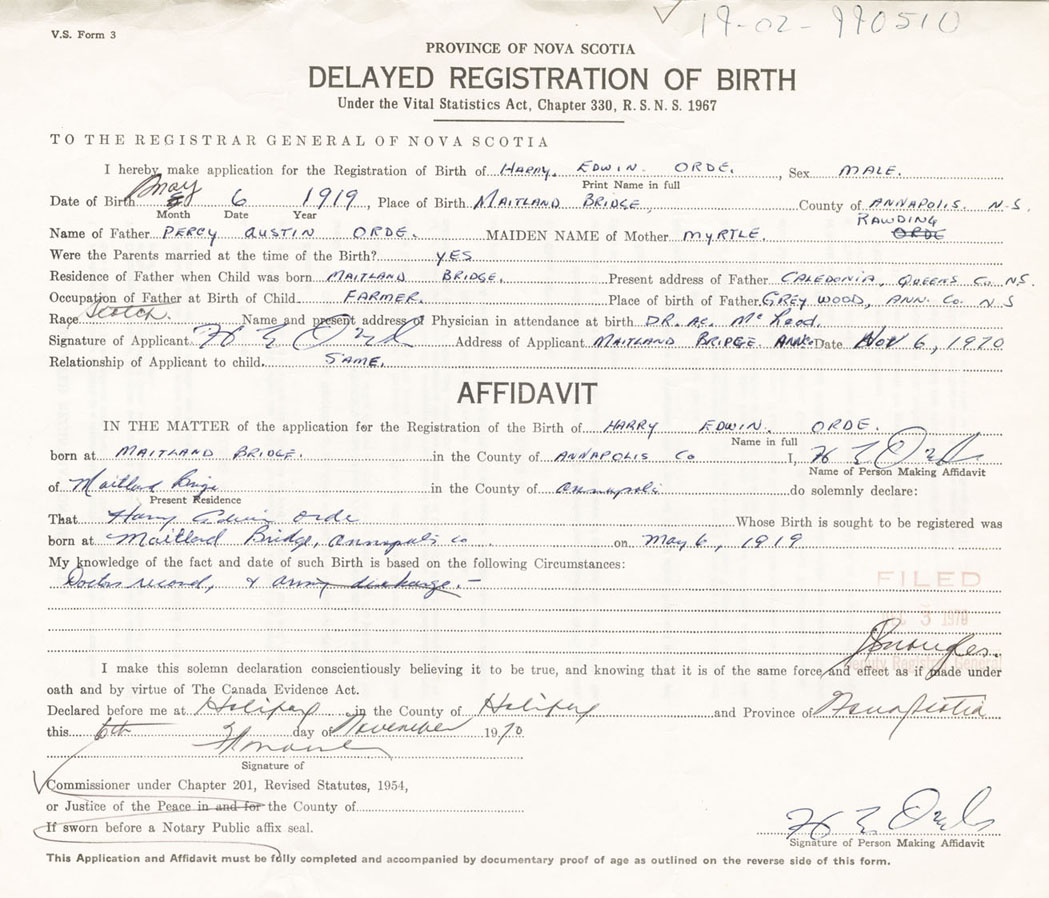 19-02-990510
V.S. Form 3
PROVINCE OF NOVA SCOTIA
DELAYED REGISTRATION OF BIRTH
Under the Vital Statistics Act, Chapter 330, R.S.N.S. 1967
TO THE REGISTRAR GENERAL OF NOVA SCOTIA
I hereby make application for the Registration of Birth of HARRY. EDWIN. ORDE. Sex MALE.
Print Name in full
Date of Birth May 6 1919, Place of Birth MAITLAND BRIDGE County of ANNAPOLIS. N-S.
Month Date Year
RAWDING
Name of Father PERCY AUSTIN ORDE. MAIDEN NAME of Mother MYRTLE. ORDE
Were the Parents married at the time of the Birth? YES
Residence of Father when Child was born MAITLAND BRIDGE. Present address of Father CALEDONIA, QUEENS CO. NS.
Occupation of Father at Birth of Child FARMER. Place of birth of Father GREY WOOD, ANN. CO. N S
Race Scotch. Name and present address of Physician in attendance at birth DR. AC. McLeod.
Signature of Applicant H E Orde Address of Applicant MAITLAND BRIDGE. ANN. Date Nov 6, 1970
Relationship of Applicant to child. SAME.
AFFIDAVIT
IN THE MATTER of the application for the Registration of the Birth of HARRY EDWIN. ORDE.
Name in full
born at MAITLAND BRIDGE. in the County of ANNAPOLIS Co I, H E Orde
Name of Person Making Affidavit
of Maitland Bridge in the County of Annapolis do solemnly declare:
Present Residence
That Harry Edwin Orde Whose Birth is sought to be registered was
born at Maitland Bridge, Annapolis Co. on May 6, 1919
My knowledge of the fact and date of such Birth is based on the following Circumstances:
Doctors record, & army discharge.-
FILED
3 1970
Deputy Registrar General
I make this solemn declaration conscientiously believing it to be true, and knowing that it is of the same force and effect as if made under
oath and by virtue of The Canada Evidence Act.
Declared before me at Halifax in the County of Halifax and Province of Nova Scotia
this 6th day of November 1970
Signature of
Commissioner under Chapter 201, Revised Statutes, 1954,
or Justice of the Peace in and for the County of
If sworn before a Notary Public affix seal.
H E Orde
Signature of Person Making Affidavit
This Application and Affidavit must be fully completed and accompanied by documentary proof of age as outlined on the reverse side of this form.